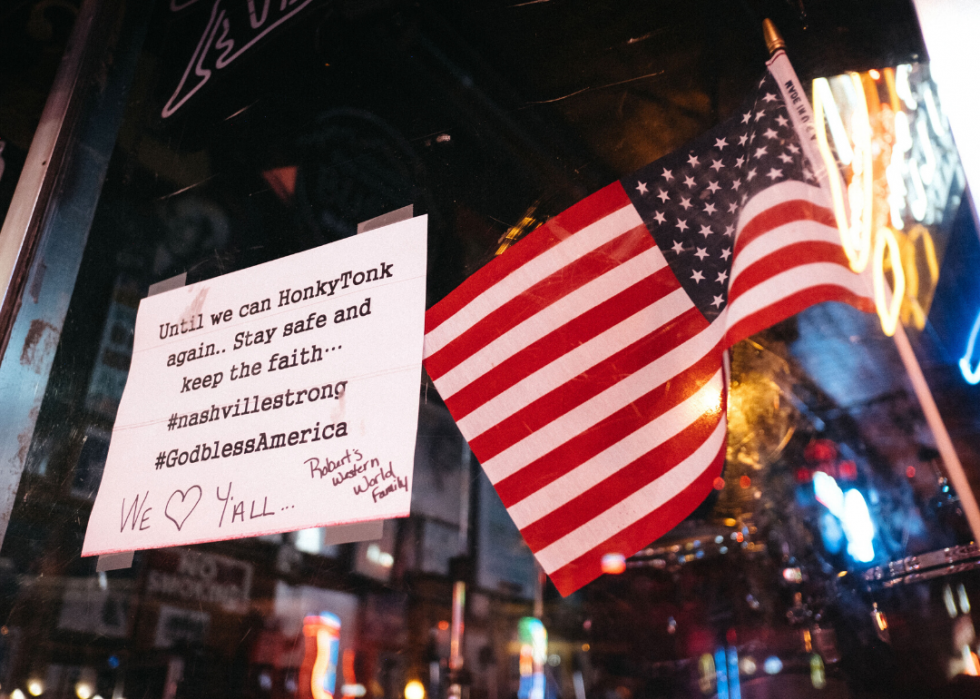 Until we can HonkyTonk
again.. Stay safe and
keep the faith...
#nashvillestrong
#GodblessAmerica
Robert's
Western
World
Family
WE ♡ Y'ALL...
NO
SMOKING